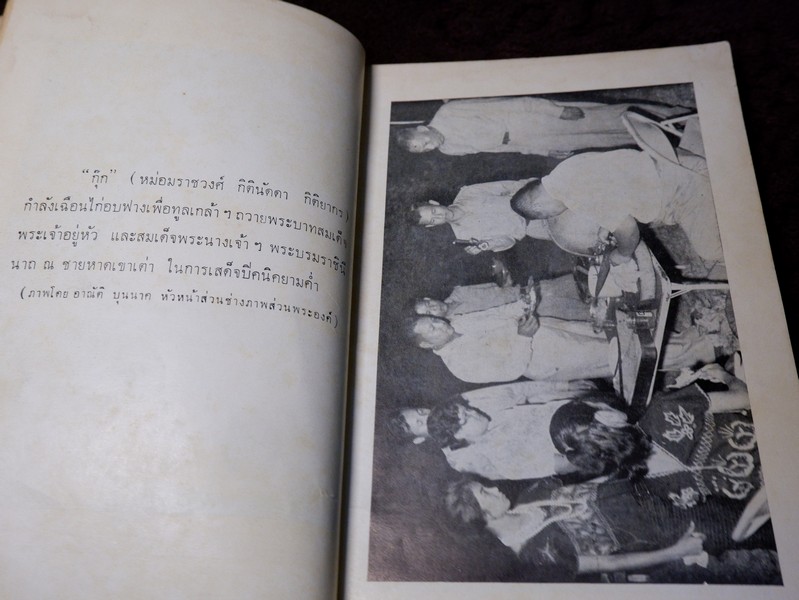 “กุ๊ก” (หม่อมราชวงศ์ กิตินัดดา กิติยากร)
กำลังเฉือนไก่อบฟางเพื่อทูลเกล้า ฯ ถวายพระบาทสมเด็จ
พระเจ้าอยู่หัว และสมเด็จพระนางเจ้า ฯ พระบรมราชินี
นาถ ณ ชายหาดเขาเต่า ในการเสด็จปิคนิคยามค่ำ
(ภาพโดย อาณัติ บุนนาค หัวหน้าส่วนช่างภาพส่วนพระองค์)